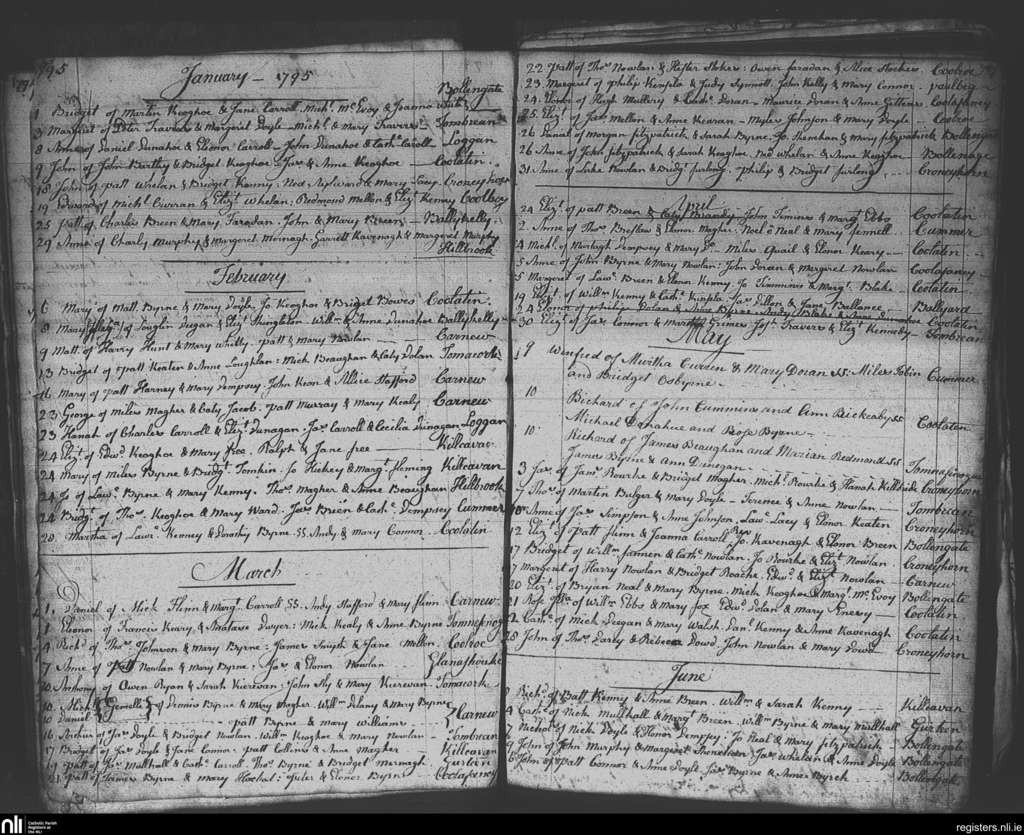 1795
January - 1795
1 Bridget of Martin Keoghoe & Jane Carroll. Michl. McEvoy & Joanna Bollengate
3 Margaret of Peter Travers & Margaret Doyle - Michl. & Mary Travers - Tombrean
8 Anne of Daniel Dunahoe & Elenor Carroll - John Dunahoe & Cath. Carroll - Loggan
9 John of John & Bridget Keoghoe Jas. & Anne Keoghoe - Coolatin
18 John of patt Whelan & Bridget Kenny: Ned & Mary Croneyhorn
19 Edward of Michl. Curran & Elizt. Whelan: Redmond Mellon & Eliz. Kenny Coolboy
25 patt. of Charles Breen & Mary Faradan. John & Mary Breen - Ballykelly
29 Anne of Charly Murphy & Margaret Garrett Kavenagh & Margaret Murphy
Killbrook
February
6 Mary of Matt. Byrne & Mary Doyle Jo Keoghoe & Bridget Bowes Coolatin
8 Mary of Degan & Elizt. Willm. & Anne Dunahoe Ballykelly
9 Matt. of Harry Hunt & Mary patt & Mary Nowlan - Carnew
13 Bridget of patt Keaten & Anne Loughlan: Mick Beaughan & Caty Dolan Tomacork
16 Mary of patt Harney & Mary Dempsey. John Keon & Allice Stafford Carnew
23 George of Miles Magher & Caty Jacob. patt Murray & Mary Kealy Carnew
23 Hanah of Charles Carroll & Elizt. Dunagan. Jas. Carroll & Cecilia Dunagan Loggan
24 Elizt. of Edwd. Keoghoe & Mary Kee. Ralph & Jane free - Killcavan
24 Mary of Miles Byrne & Bridgt. Tomkin. Jo Hickey & Margt. fleming Killcavan
24 Jo of Lawe. Byrne & Mary Kenny. Thos. Magher & Anne Beaughan Hillbrook
24 Bridgt. of Thos. Keoghoe & Mary Ward. Jas. Breen & Cath. Dempsey Cummer
20 Martha of Lawe. Kenney & Dorothy Byrne. SS. Andy & Mary Connor Coolatin
March
1. Daniel of Mick Flinn & Margt. Carroll. SS. Andy Stafford & Mary flinn Carnew
1 Eleonor of Francis Keary & Anstasse Dwyer: Mick Kealy & Anne Byrne
4 Richd. of Thos. Johnson & Mary Byrne: James Smyth & Jane Mellon. Coolroe
7 Anne of Patt Nowlan & Mary Byrne: Jas. & Elonor Nowlan
10. Anthony of Owen Ryan & Sarah Kierevan: John & Mary Kierevan Tomacork
10. Michl. } Gemelli } of Dennis Byrne & Mary Magher. Willm. Delany & Mary Byrne
10 Daniel patt Byrne & Mary Williams } Carnew
16 Arthur of Jas. Doyle & Bridget Nowlan. Willm. Keoghoe & Mary Nowlan - Tombrean
17 Bridget of Jas. Doyle & Jane Connor. patt Collins & Anne Magher Killcavan
19 patt of Jas. Mulhall & Cath. Carroll. Thos. Byrne & Bridget
21 patt of James Byrne & Mary Peter & Elenor Byrn Coolafaney
22 patt of Thos. Nowlan & Hester Stokes: Owen faradan & Alice Coolroe
23 Margaret of philip Kensela & Judy Synnott. John Kelly & Mary Connor. paulbegin
24. Honor of Hugh Mullery & Doran - Maurice Doran & Anne Coolafaney
25 Eliz. of Jas. Mellon & Anne Kearan - Myles Johnson & Mary Doyle - Coolroe -
26 Daniel of Morgan fitzpatrick & Sarah Byrne. Jo Shenehan & Mary fitzpatrick Bollengate
26 Anne of John fitzpatrick & Sarah Keoghoe. Ned Whelan & Anne Keoghoe -
31 Anne of Luke Nowlan & Bridgt. furlong. philip & Bridget furlong - Croneyhorn
April
24 Elizt. of patt Breen & Caty Brandy John Timins & Margt. Ebbs Coolatin
2. Anne of Thos. Breslaw & Elenor Magher: Noel o Neal & Mary fennell Cummer
4 Michl. of Murtagh Dempsey & Mary Do. - Miles Quail & Elonor Keary - Coolatin
5 Anne of John Byrne & Mary Nowlan: John Doran & Margaret Nowlan Coolafaney
5 Margaret of Lawe. Breen & Elenor Kenny Jo Timmins & Margt. Blake Coolatin
19 Elizt. of Willm. Kenny & Cath. Kinsela. Jas. Dillon & Jane Ballance Ballyard
24 Elonor of philip Dolan & Anne Byrne Andy Blake & Anne Coolatin
30 Elizt. of Jas. Connor & Martha Grimes. Jas. Travers & Elizt. Kennedy - Tombrean
May
9 Winifred of Murtha Curren & Mary Doran SS. Miles Tobin
and Bridget Osbyrne - Cummer
10 Richard of John Cummins and Ann Rickeaby SS
Michael Donahue and Rose Byrne - Coolatin
10. Richard of James Beaughan and Marian Redmond SS
James Byrne & Ann Dunegan -
3 Jas. of Jams. Rourke & Bridget Magher. Michl. Rourke & Hanah Killbride Croneyhorn
7 Thos. of Martin Bulger & Mary Doyle - Terence & Anne Nowlan - Tombrean
10 Anne of Jas. Simpson & Anne Johnson. Lawe. Lacy & Elonor Keaten Croneyhorn
12 Elizt. of patt flinn & Joanna Carroll Jo. Kavenagh & Elonor Breen Bollengate
17 Bridget of Willm. fannen & Cath. Nowlan. Jo Rourke & Elizt. Nowlan. Croneyhorn
7 Margaret of Harry Nowlan & Bridget Roache. Edwd. & Elizt. Nowlan - Carnew
20 Elizt. of Bryan Neal & Mary Byrne. Mick Keoghoe & Margt. McEvoy Bollengate
21 Rose of Willm. Ebbs & Mary fox Edwd. Dolan & Mary Coolatin
22 Cath. of Mick Deegan & Mary Walsh. Danl. Kenny & Anne Kavenagh Coolatin
25 John of Thos. Darly & Rebecca Dowd. John Nowlan & Mary Dowd Croneyhorn
June
Richd. of Batt Kenny & Anne Breen. Willm. & Sarah Kenny - Killcavan
4 Cath. of Nick Mullhall & Margt. Breen. Willm. Byrne & Mary Mullhall
4 Nichol. of Nick Doyle & Elonor Dempsey: Jo Neal & Mary fitzpatrick - Bollengate
John of John Murphy & Margaret Jas. Whelan & Anne Doyle Bollengate
6 John of patt Connor & Anne Doyle Jas. Byrne & Anne Byrch Bollengate
nli
Catholic Parish
Registers at
the NLI
registers.nli.ie